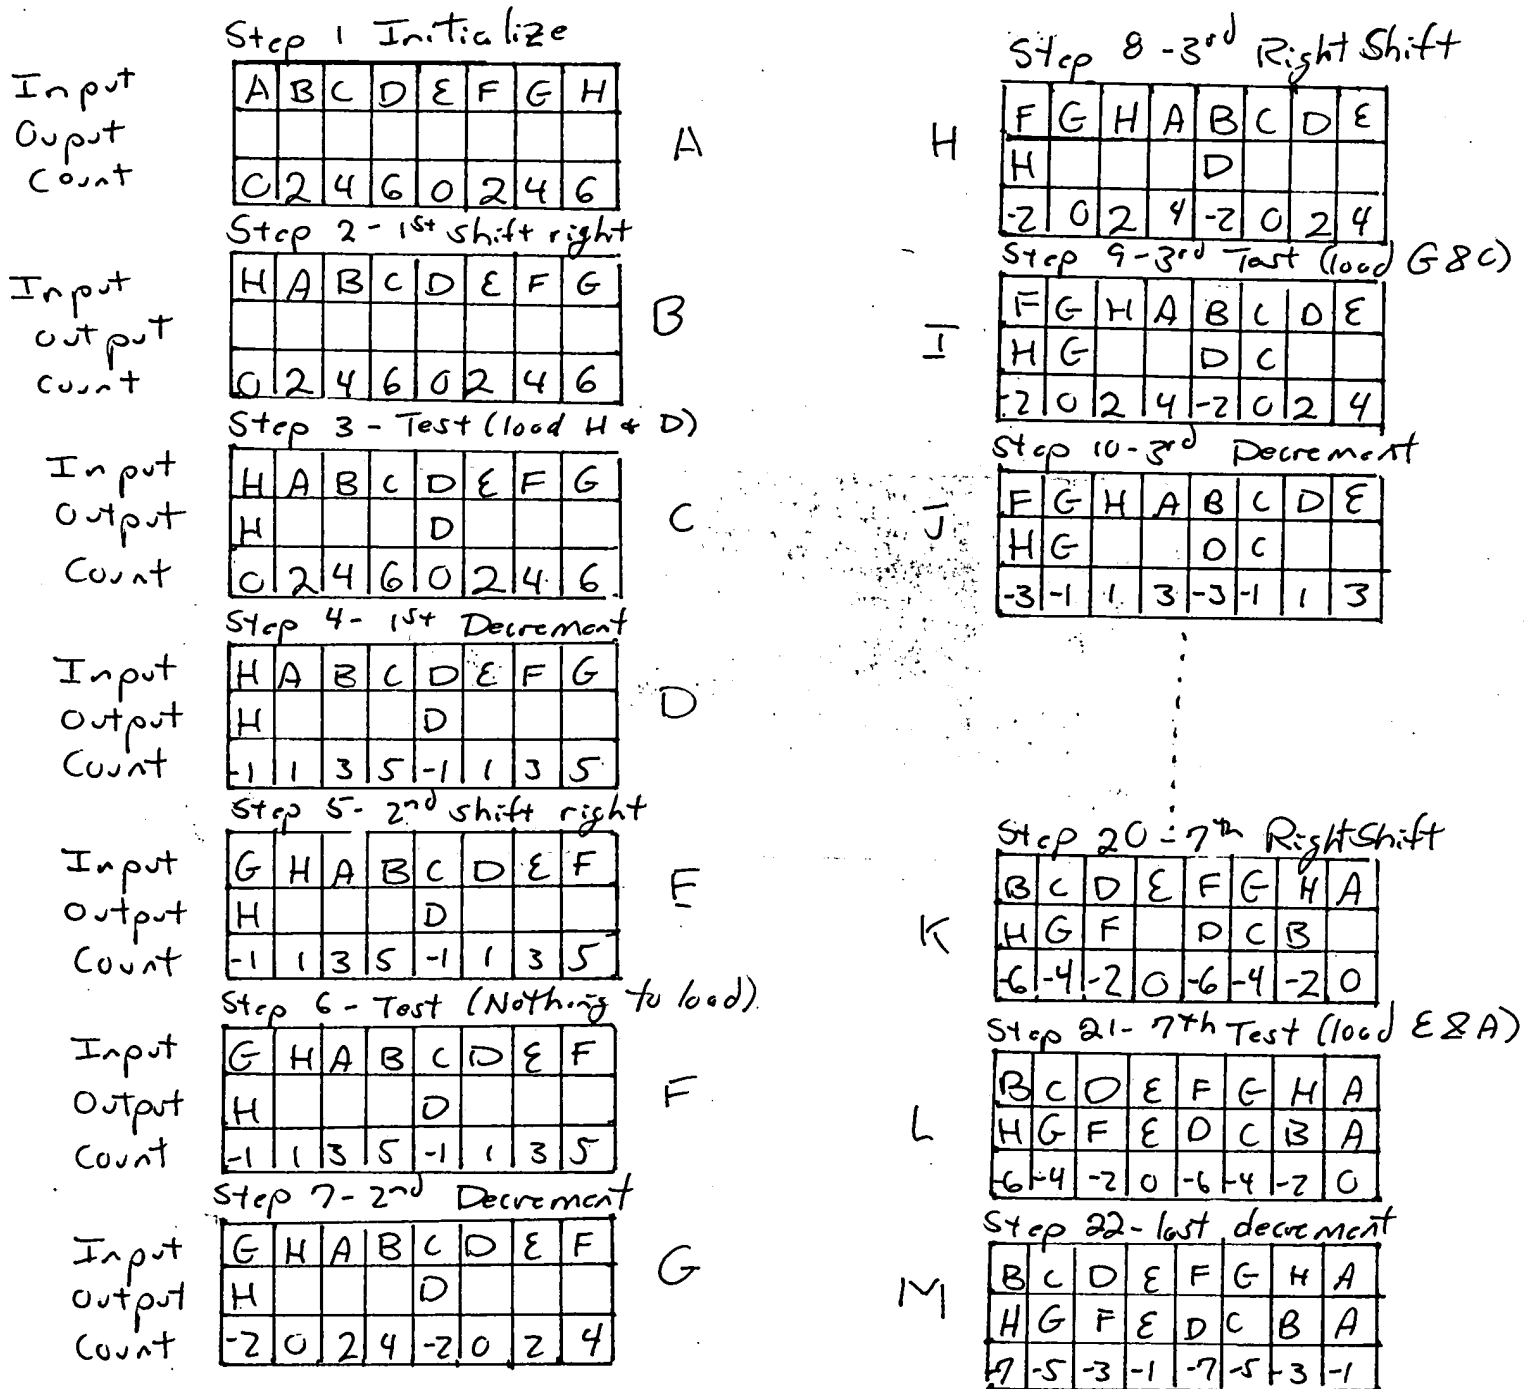 Step 1 Initialize
Input A B C D E F G H
Ouput
Count 0 2 4 6 0 2 4 6
A
Step 2 - 1st shift right
Input H A B C D E F G
output
count 0 2 4 6 0 2 4 6
B
Step 3 - Test (load H & D)
Input H A B C D E F G
Output H D
Count 0 2 4 6 0 2 4 6
C
Step 4 - 1st Decrement
Input H A B C D E F G
Output H D
Count -1 1 3 5 -1 1 3 5
D
Step 5 - 2nd shift right
Input G H A B C D E F
Output H D
Count -1 1 3 5 -1 1 3 5
E
Step 6 - Test (Nothing to load)
Input G H A B C D E F
Output H D
Count -1 1 3 5 -1 1 3 5
F
Step 7 - 2nd Decrement
Input G H A B C D E F
Output H D
Count -2 0 2 4 -2 0 2 4
G
Step 8 - 3rd Right Shift
F G H A B C D E
H D
-2 0 2 4 -2 0 2 4
H
Step 9 - 3rd Test (load G & C)
F G H A B C D E
H G D C
-2 0 2 4 -2 0 2 4
I
Step 10 - 3rd Decrement
F G H A B C D E
H G D C
-3 -1 1 3 -3 -1 1 3
J
Step 20 - 7th Right Shift
B C D E F G H A
H G F D C B
-6 -4 -2 0 -6 -4 -2 0
K
Step 21 - 7th Test (load E & A)
B C D E F G H A
H G F E D C B A
-6 -4 -2 0 -6 -4 -2 0
L
Step 22 - last decrement
B C D E F G H A
H G F E D C B A
-7 -5 -3 -1 -7 -5 -3 -1
M